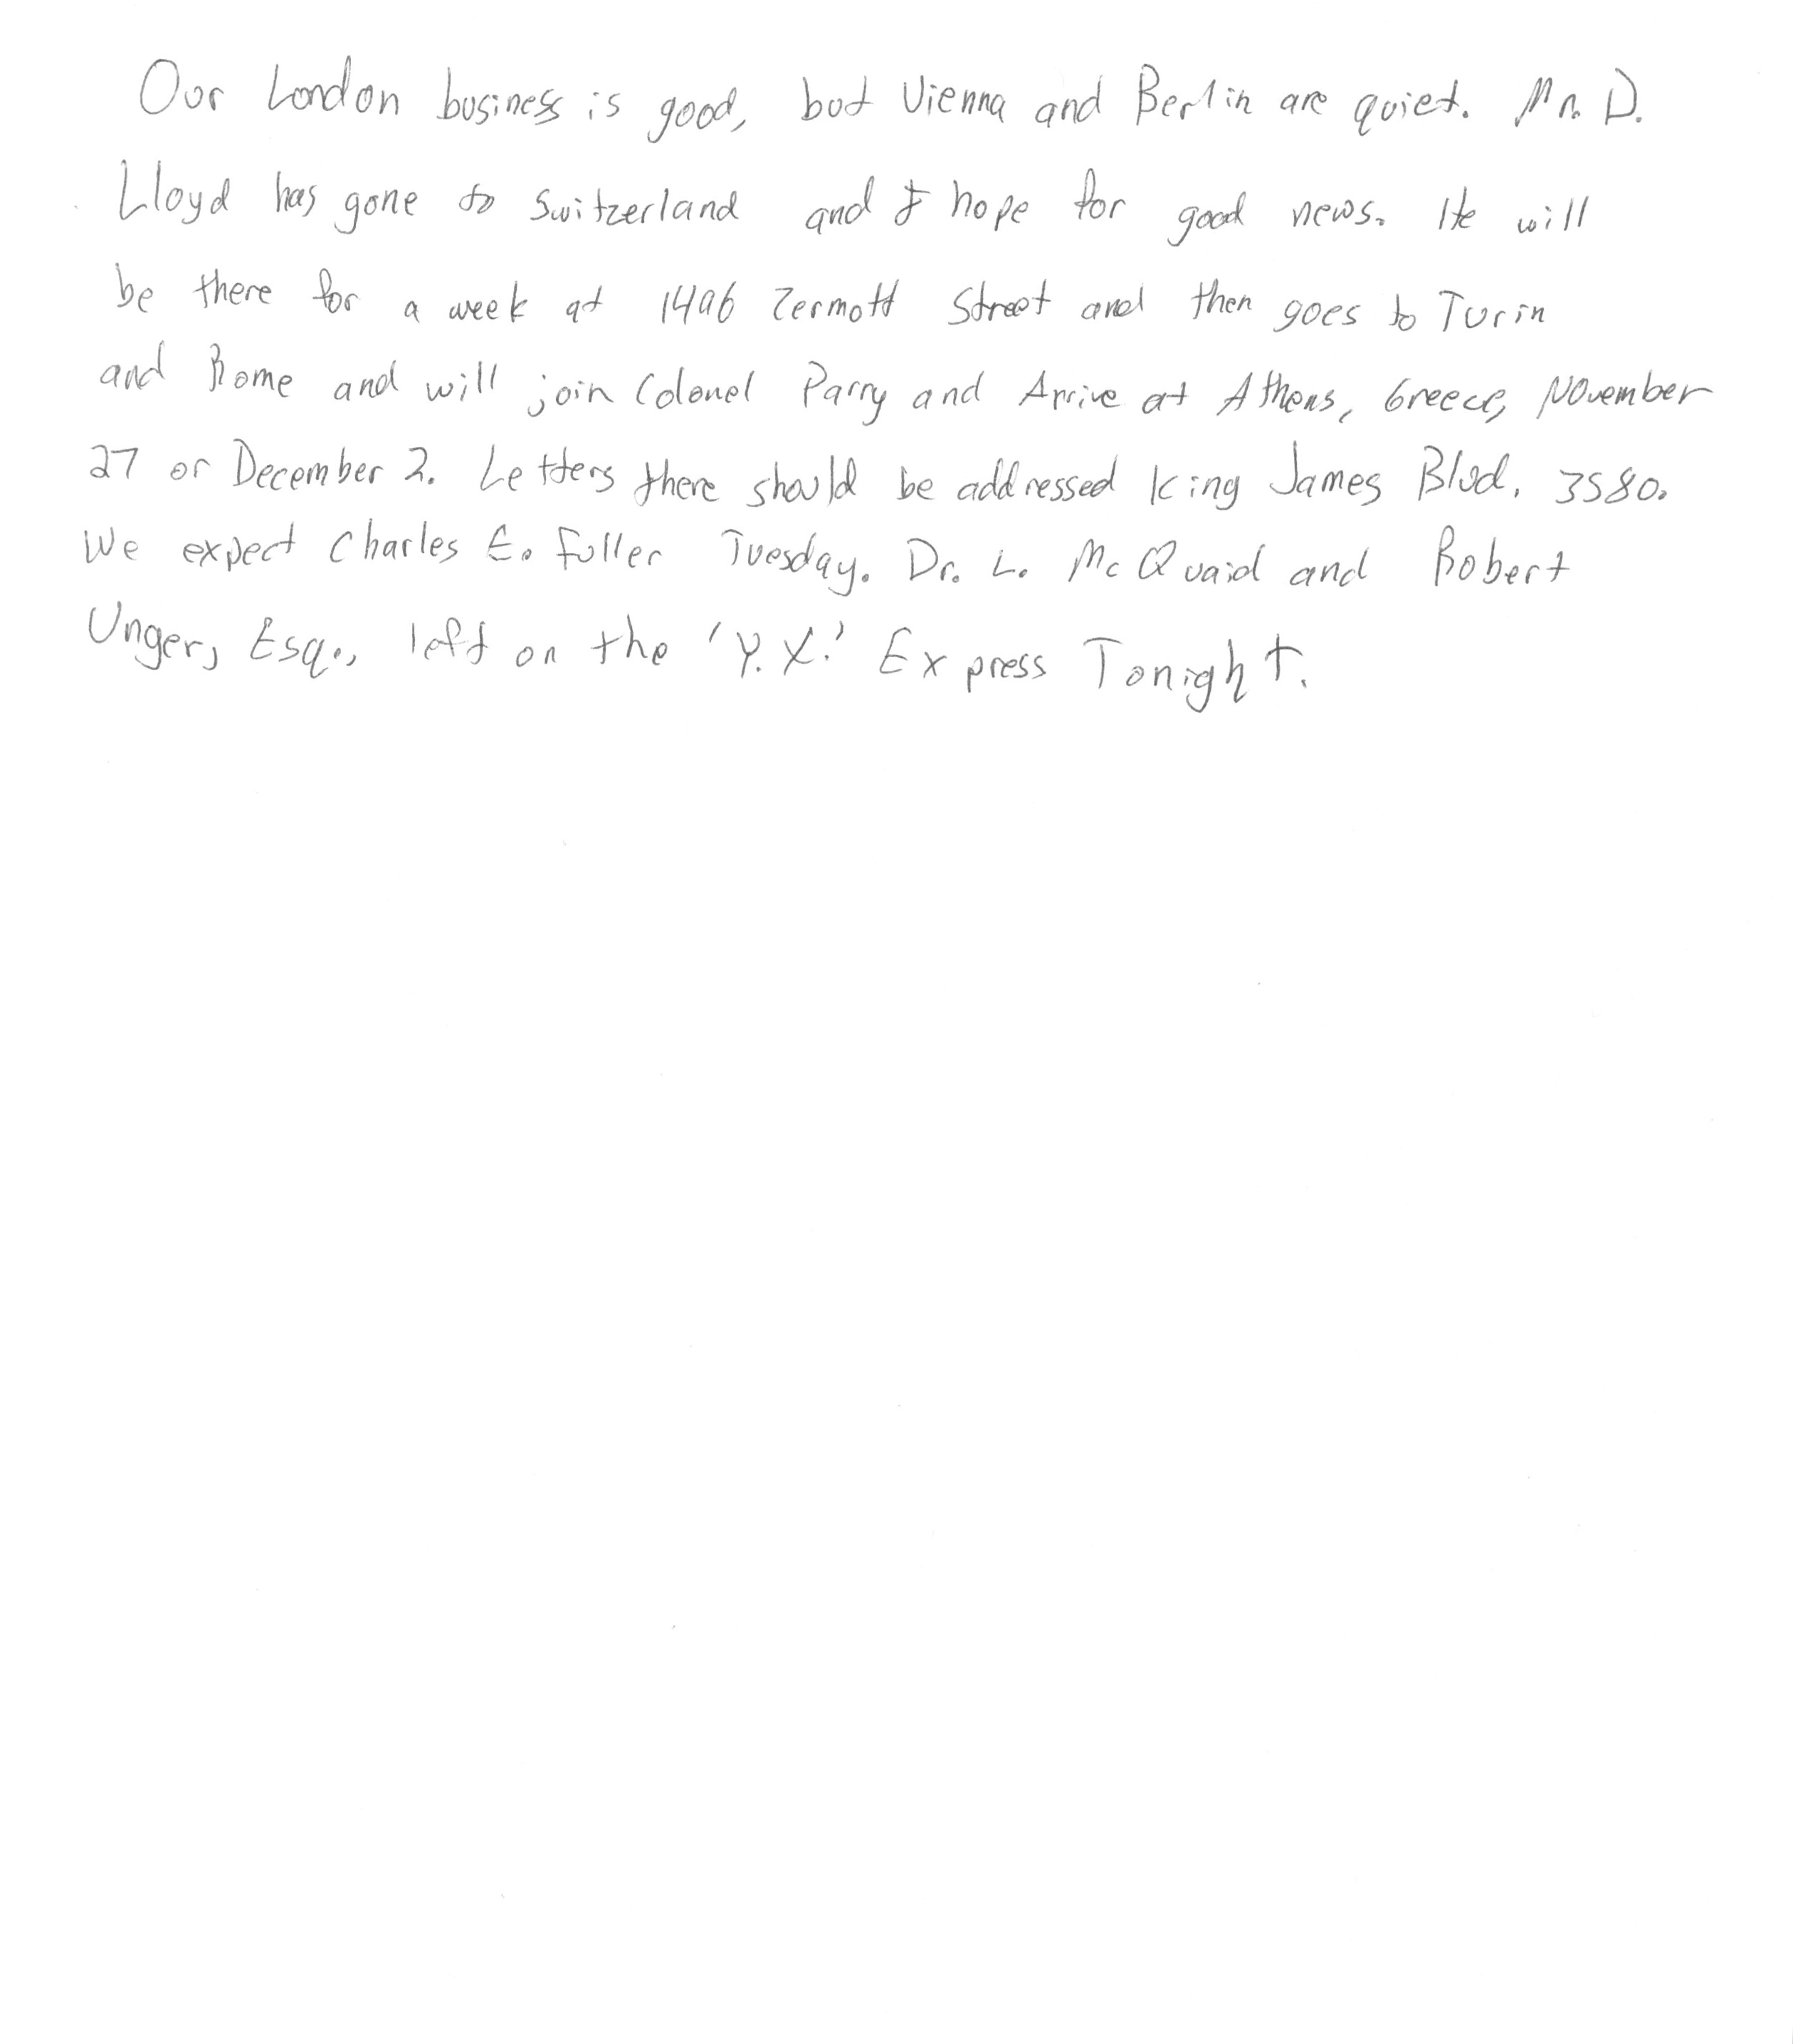 Our London business is good, but Vienna and Berlin are quiet. Mr. D.
Lloyd has gone to Switzerland and I hope for good news. He will
be there for a week at 1496 Zermott Street and then goes to Turin
and Rome and will join Colonel Parry and Arrive at Athens, Greece, November
27 or December 2. Letters there should be addressed King James Blvd. 3580.
We expect Charles E. Fuller Tuesday. Dr. L. McQuaid and Robert
Unger, Esq., left on the 'Y.X.' Express Tonight.